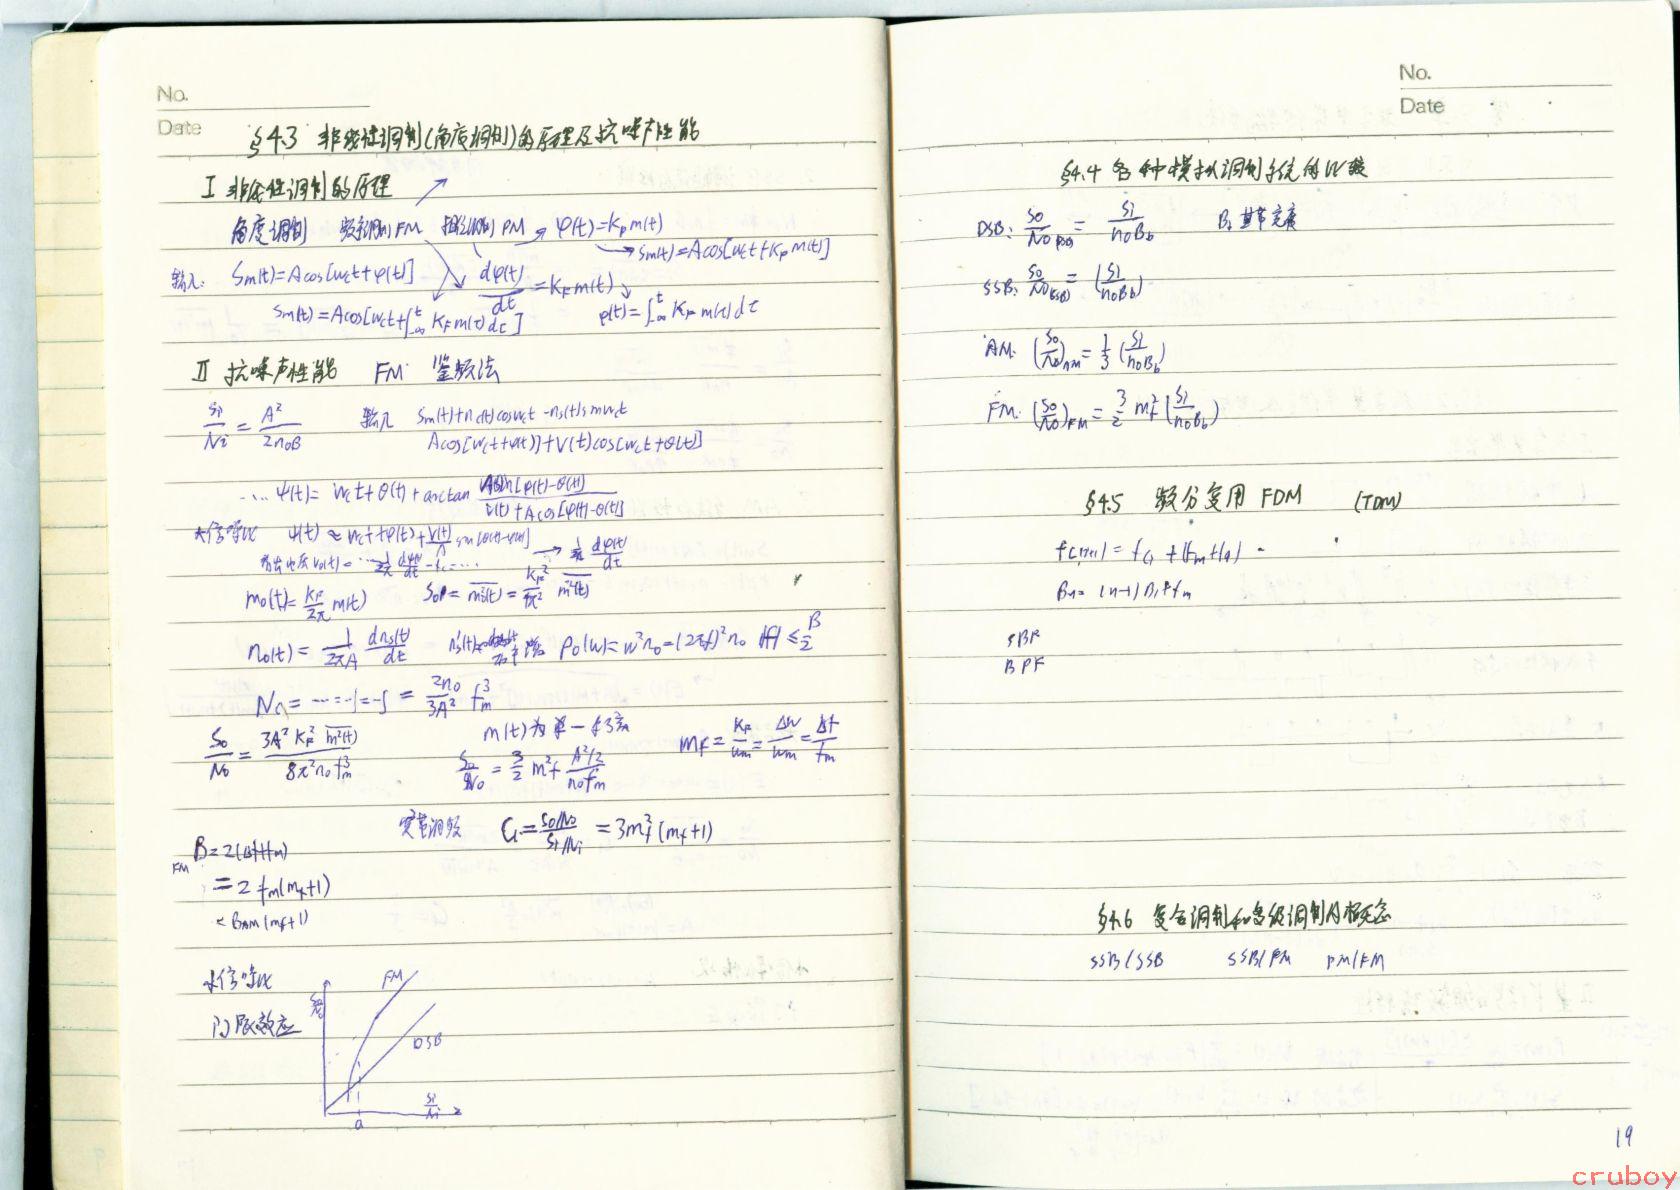 No.
Date
§4.3 非线性调制(角度调制)的原理及抗噪声性能
I 非线性调制的原理
角度调制 频率调制FM 相位调制PM → φ(t)=Kp m(t)
→ Sm(t)=Acos[wct+Kp m(t)]
输入: Sm(t)=Acos[wct+φ(t)] dφ(t)/dt = KF m(t)
Sm(t)=Acos[wct+∫_{-∞}^{t} KF m(τ)dτ] φ(t)=∫_{-∞}^{t} KF m(t)dτ
II 抗噪声性能 FM: 鉴频法
Si/Ni = A²/2n0B 输入 Sm(t)+nc(t)coswct-ns(t)sinwct
Acos[wct+φ(t)]+V(t)cos[wct+θ(t)]
... ψ(t)= wct+θ(t)+arctan Asin[φ(t)-θ(t)]/V(t)+Acos[φ(t)-θ(t)]
大信噪比 ψ(t)≈wct+φ(t)+V(t)/A sin[θ(t)-φ(t)] → 1/2π dφ(t)/dt
输出电压v0(t)=...1/2π dψ(t)/dt - fc=...
m0(t)=KF/2π m(t) S0=m²(t)=KF²/4π² m²(t)
n0(t)= 1/2πA dns(t)/dt 功率谱 P0(w)=w²n0=(2πf)²n0 |f|≤B/2
N0=......= 2n0/3A² fm³
S0/N0 = 3A²KF² m²(t)/8π²n0fm³ m(t)为
S0/N0 = 3/2 mf² A²/2/n0fm mf=KF/wm=Δw/wm=Δf/fm
宽带调频 G=S0/N0/Si/Ni = 3mf²(mf+1)
BFM=2(Δf+fm)
=2fm(mf+1)
BAM(mf+1)
小信噪比
门限效应
S0/N0
FM
DSB
Si/Ni
a
No.
Date
§4.4 各种模拟调制系统的比较
DSB: S0/N0(DSB) = Si/n0Bb Bb 基带宽度
SSB: S0/N0(SSB) = (Si/n0Bb)
AM: (S0/N0)AM = 1/3 (Si/n0Bb)
FM: (S0/N0)FM = 3/2 mf² (Si/n0Bb)
§4.5 频分复用 FDM (TDM)
fc(n+1) = fcn+(fm+fg)
Bn= (n-1)B1+fm
SBF
BPF
§4.6 复合调制和多级调制的概念
SSB/SSB SSB/FM FM/FM
19
cruboy